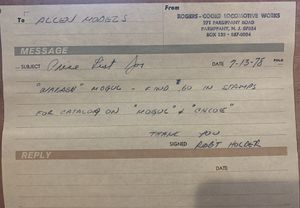 From
To ALLEN MODELS
ROGERS-COOKE LOCOMOTIVE WORKS
271 PARSIPPANY ROAD
PARSIPPANY, N. J. 07054
BOX 135 - 887-0084
MESSAGE
SUBJECT Price List for DATE 7-13-78 FOLD
"WABASH" MOGUL - FIND .60 IN STAMPS
FOR CATALOG ON "MOGUL" & "ONCOE"
THANK YOU
SIGNED ROBT HOLDER
REPLY
DATE